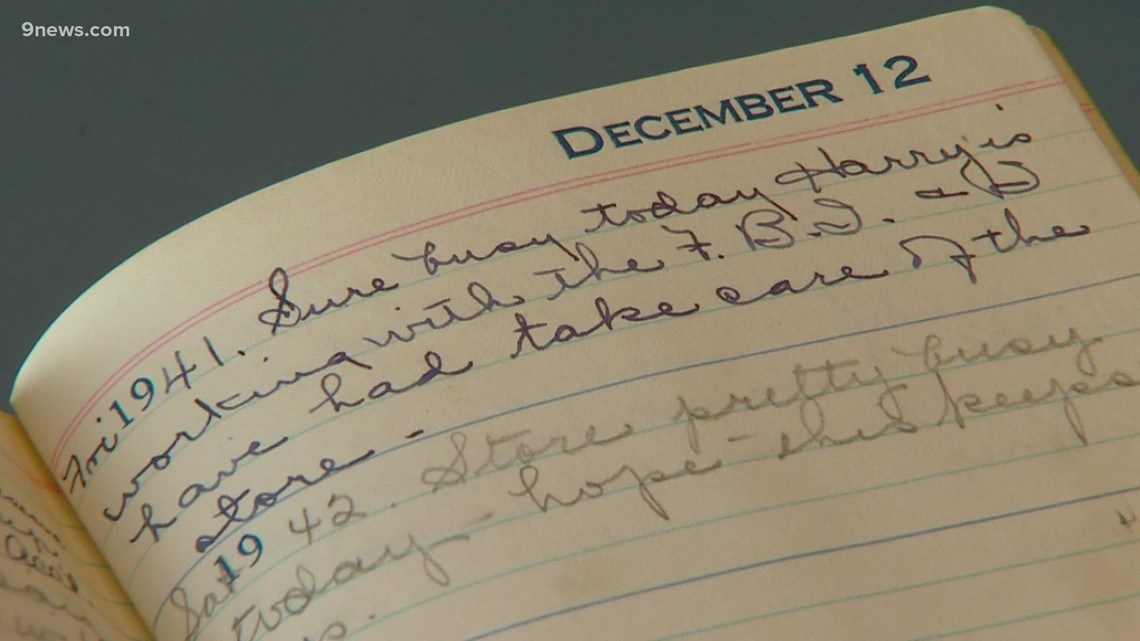 9news.com
DECEMBER 12
Fri 1941. Sure busy today Harry is
working with the F.B.I. - & I
have had take care of the
store -
Sat 1942. Store pretty busy
today - hope this keeps
up.